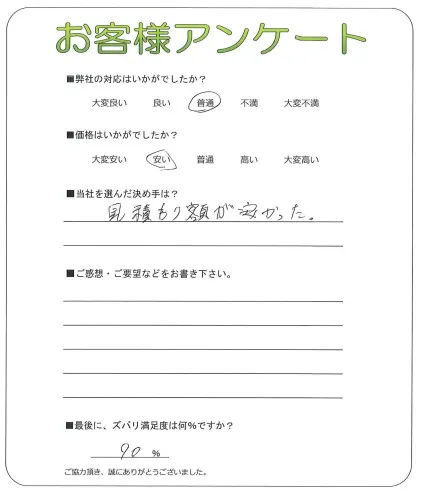 お客様アンケート
■弊社の対応はいかがでしたか？
大変良い 良い 普通 不満 大変不満
■価格はいかがでしたか？
大変安い 安い 普通 高い 大変高い
■当社を選んだ決め手は？
見積もり額が安かった。
■ご感想・ご要望などをお書き下さい。
■最後に、ズバリ満足度は何%ですか？
90 %
ご協力頂き、誠にありがとうございました。